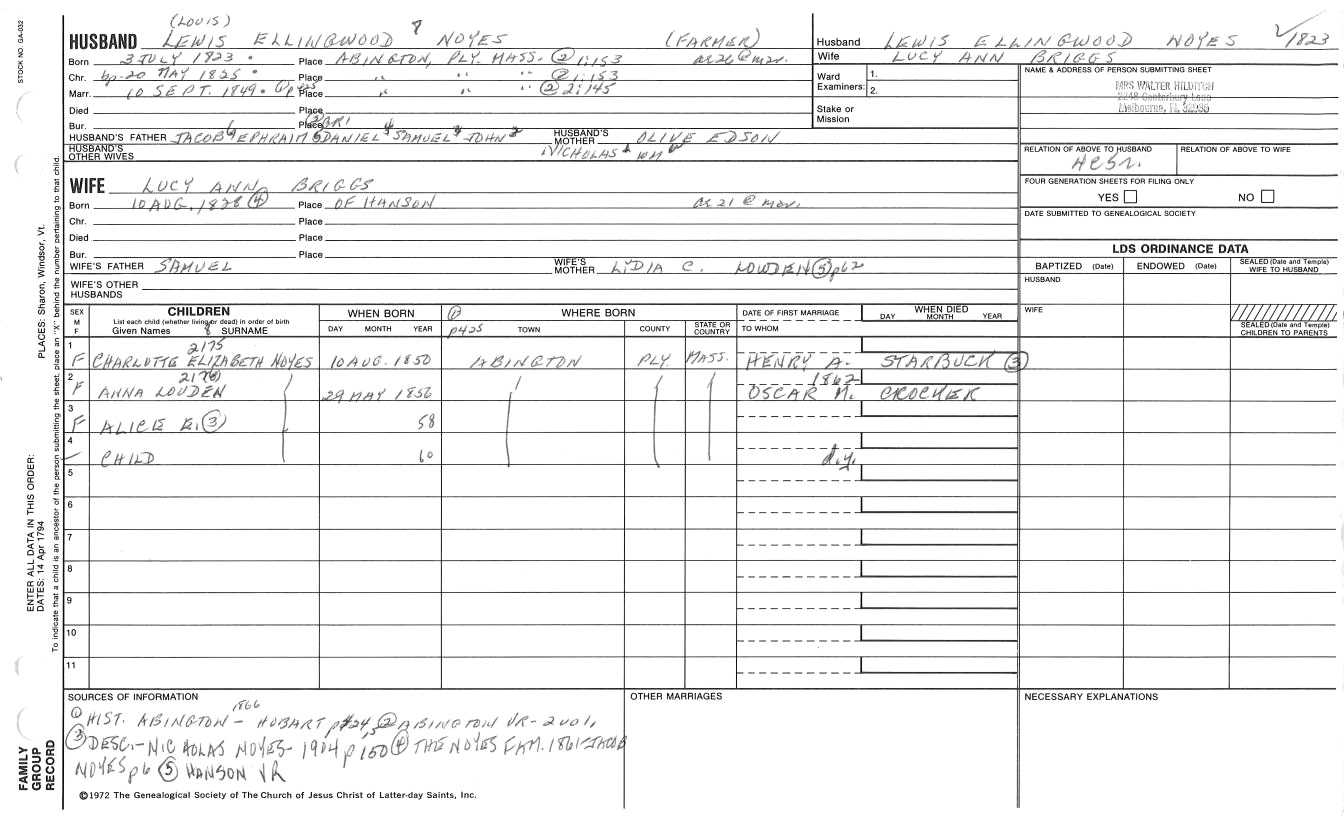 STOCK NO. GA-032
(LOUIS)
HUSBAND LEWIS ELLINGWOOD 8 NOYES (FARMER)
Born 3 JULY 1823 Place ABINGTON, PLY. MASS. ② 1:153 as 26 @ mar.
Chr. bp-20 MAY 1825 Place " " " ② 1:153
Marr. 10 SEPT. 1849 ① p425 Place " " " ② 2:145
Died Place
Bur. Place
HUSBAND'S FATHER JACOB 6 EPHRAIM 5 DANIEL 4 SAMUEL 3 JOHN 2 HUSBAND'S MOTHER OLIVE EDSON
HUSBAND'S OTHER WIVES NICHOLAS 1 WM
WIFE LUCY ANN BRIGGS
Born 10 AUG. 1828 ④ Place OF HANSON as 21 @ mar.
Chr. Place
Died Place
Bur. Place
WIFE'S FATHER SAMUEL WIFE'S MOTHER LYDIA C. LOWDEN ⑤ p62
WIFE'S OTHER HUSBANDS
Husband LEWIS ELLINGWOOD NOYES ✓1823
Wife LUCY ANN BRIGGS
Ward Examiners: 1. 2.
Stake or Mission
NAME & ADDRESS OF PERSON SUBMITTING SHEET
MRS WALTER HILDITCH
2248 Canterbury Lane
Melbourne, FL 32935
RELATION OF ABOVE TO HUSBAND RELATION OF ABOVE TO WIFE
FOUR GENERATION SHEETS FOR FILING ONLY
YES NO
DATE SUBMITTED TO GENEALOGICAL SOCIETY
LDS ORDINANCE DATA
BAPTIZED (Date) ENDOWED (Date) SEALED (Date and Temple) WIFE TO HUSBAND
HUSBAND
WIFE
SEALED (Date and Temple) CHILDREN TO PARENTS
SEX M F CHILDREN WHEN BORN ① WHERE BORN DATE OF FIRST MARRIAGE WHEN DIED
List each child (whether living or dead) in order of birth
Given Names 8 SURNAME DAY MONTH YEAR p425 TOWN COUNTY STATE OR COUNTRY TO WHOM DAY MONTH YEAR
2175
1 F CHARLOTTE ELIZABETH NOYES 10 AUG. 1850 ABINGTON PLY. MASS. HENRY A. STARBUCK ③
2176 1862
2 F ANNA LOUDEN 29 MAY 1856 OSCAR M. CROCKER
3 F ALICE E. ③ 58
4 – CHILD 60 d.y.
5
6
7
8
9
10
11
SOURCES OF INFORMATION
1866
① HIST. ABINGTON – HOBART p424,5 ② ABINGTON VR-2 vol,
③ DESC.-NICHOLAS NOYES-1904 p150 ④ THE NOYES FAM. 1861-JACOB
NOYES p6 ⑤ HANSON VR
OTHER MARRIAGES
NECESSARY EXPLANATIONS
©1972 The Genealogical Society of The Church of Jesus Christ of Latter-day Saints, Inc.
FAMILY GROUP RECORD
ENTER ALL DATA IN THIS ORDER:
DATES: 14 Apr 1794
PLACES: Sharon, Windsor, Vt.
To indicate that a child is an ancestor of the person submitting the sheet, place an "X" behind the number pertaining to that child.